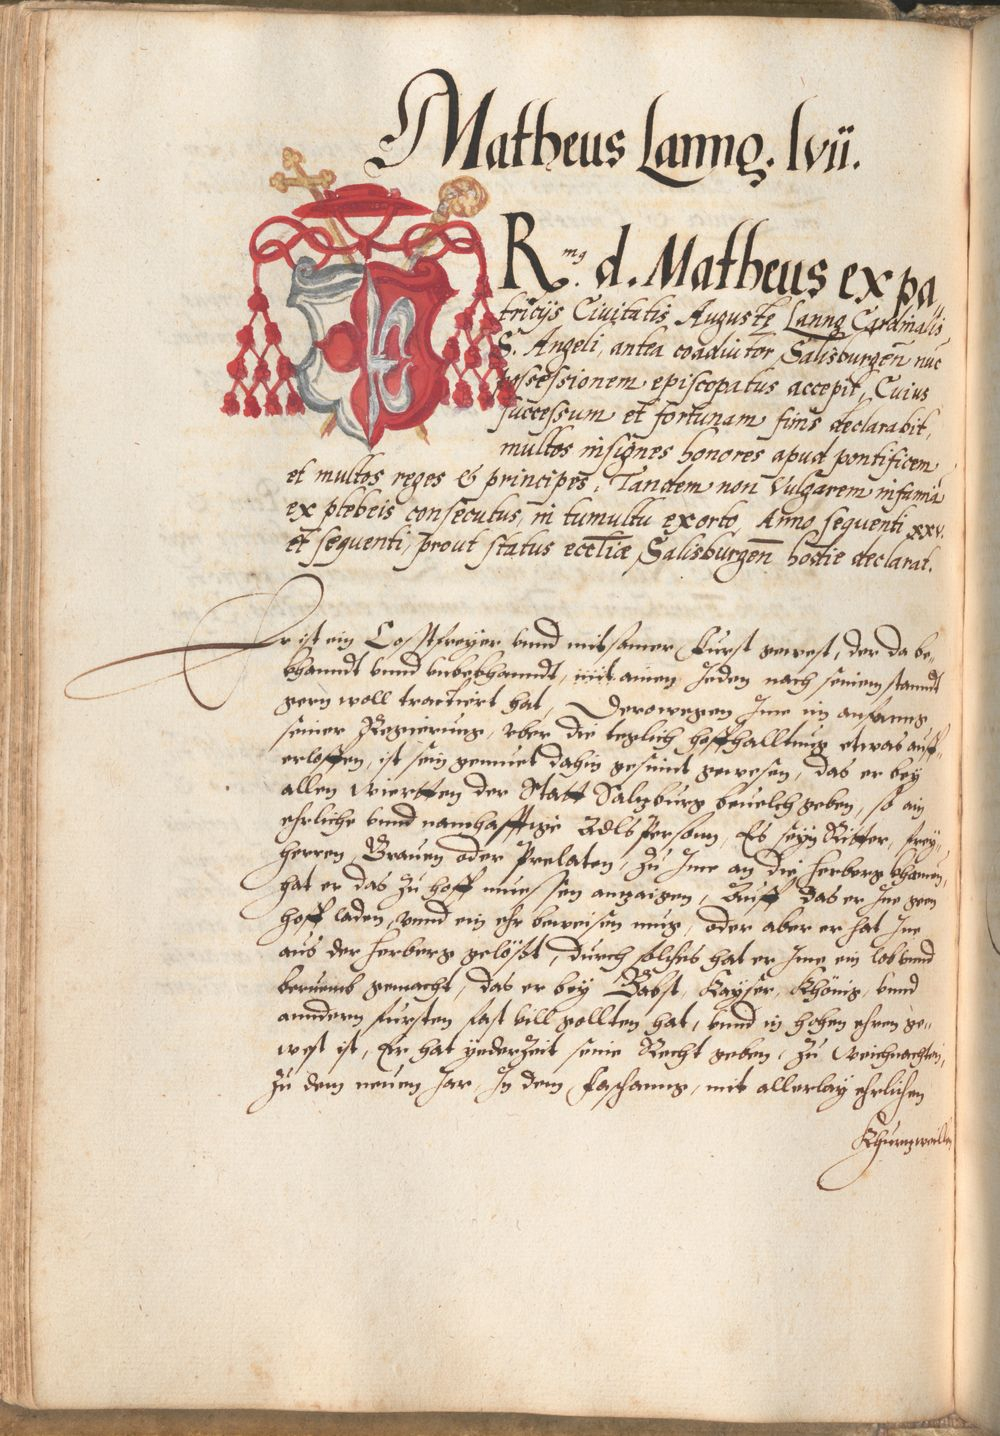 Matheus Lanng. lvii.
R.mꝰ d. Matheus ex pa„
tricijs Civitatis Auguste Lanng Cardinalis
S. Angeli, antea coadiutor Salisburgen̄ nūc
possessionem episcopatus accepit, Cuius
successum et fortunam finis declarabit,
multos insignes honores apud pontificem
et multos reges & principes. Tandem non Vulgarem infamiā
ex plebeis consecutus, in tumultu exorto, Anno sequenti xxv.
et sequenti, prout status eccłiæ Salisburgen̄ hodie declarat.
Er ist ein Cosstfreyer vnnd mitsamer Fürst gewest, der da be„
khanndt vnnd vnbekhanndt, mit ainen Jeden nach seinem stanndt
gern woll tractiert hat, Derowegen Ime im anfanng
seiner Regierung, vber die teglich hoffhalltung etwas auff„
erloffen, ist sein gemuet dahin gesinnt gewesen, das er bey
allen Wierтten der Statt Saltzburg beuelch geben, so ain
ehrliche vnnd namhafftige Adls Persohn, Es seyn Ritter, frey„
herren, Grauen oder Prelaten, zu Ime an die herberg khomen,
hat er das zu hoff muessen anzaigen, Auff das er Ine gen
hoff laden, vnnd ein ehr beweisen mug, oder aber er hat Ine
aus der herberg gelößt, durch solches hat er Ime ein lob vnnd
beruemb gemacht, das er bey Babst, Kayser, Khönig, vnnd
anndern fürsten fast vill gollten hat, vnnd in hohen ehren ge„
west ist, Er hat yederzeit seine Recht geben, zu Weichnachten,
zu dem neuen Jar, In dem Faschanng, mit allerlay ehrlichen
Khurzweillen